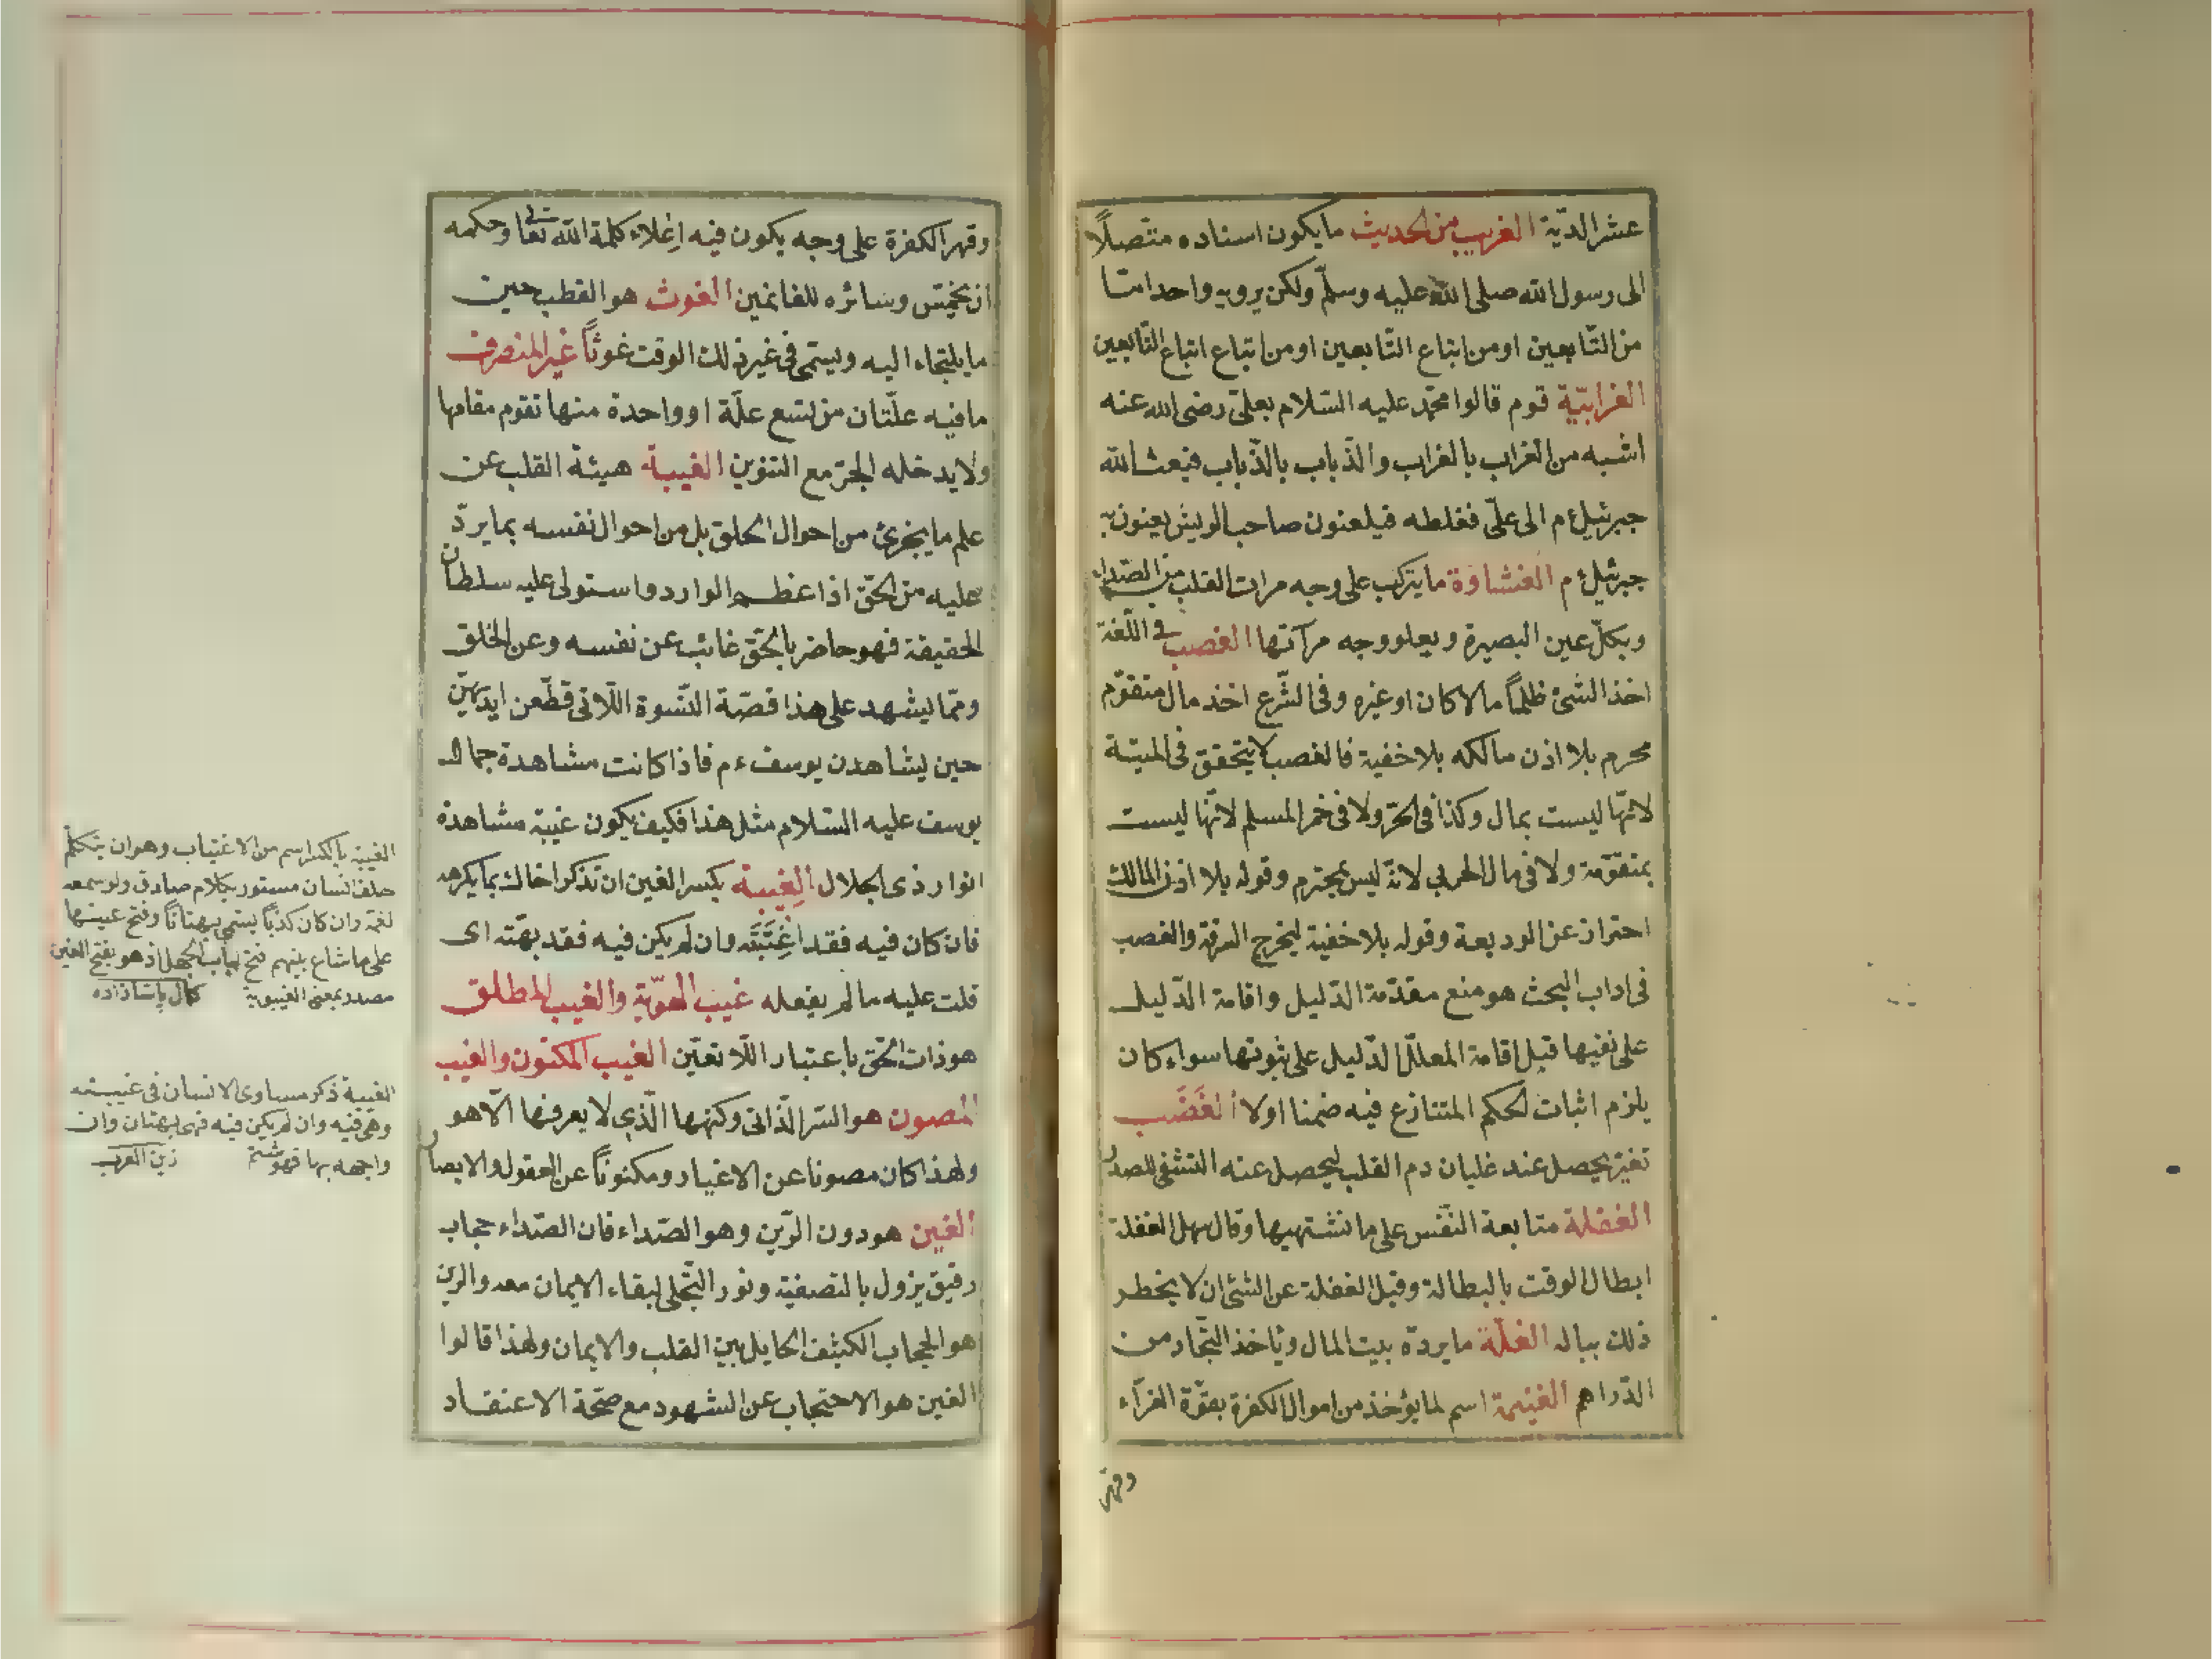 عشر الدّية الغريب من الحديث ما يكون اسناده متّصلًا
الى رسول الله صلى الله عليه وسلّم ولكن يرويه واحد امّا
من التّابعين او من اتباع التّابعين او من اتباع اتباع التّابعين
الغرابيّة قوم قالوا محمّد عليه السّلام بعلىّ رضى الله عنه
اشبه من الغراب بالغراب والذّباب بالذّباب فبعث الله
جبرئيل ءم الى علىّ فغلطه فيلعنون صاحب الريش يعنون به
جبرئيل ءم الغشاوة ما يتركب على وجه مرات القلب من الصّداء
ويكلّ عين البصيرة ويعلو وجه مرآتها الغصب فى اللّغة
اخذ الشئ ظلمًا مالا كان او غيره وفى الشّرع اخذ مال متقوّم
محرم بلا اذن مالكه بلا خفية فالغصب لا يتحقق فى الميتة
لانّها ليست بمال وكذا فى الحرّ ولا فى خمر المسلم لانّها ليست
بمتقوّمة ولا فى مال الحربى لانّه ليس بمحترم وقوله بلا اذن المالك
احتراز عن الوديعة وقوله بلا خفية ليخرج السرقة والغصب
فى اداب البحث هو منع مقدّمة الدّليل واقامة الدّليل
على نفيها قبل اقامة المعلّل الدّليل على ثبوتها سواء كان
يلزم اثبات الحكم المتنازع فيه ضمنا اولا الغَضَب
تغيّر يحصل عند غليان دم القلب ليحصل عنه التشفى للصدر
الغفلة متابعة النّفس على ما تشتهيها وقال سهل الغفلة
ابطال الوقت بالبطالة وقيل الغفلة عن الشئ ان لا يخطر
ذلك بباله الغلّة ما يردّه بيت المال ويأخذ التّجّار من
الدّراهم الغنيمة اسم لما يؤخذ من اموال الكفرة بقوّة الغزاء
وقهر
وقهر الكفرة على وجه يكون فيه اِعلاء كلمة الله تعالى وحكمه
ان يخمّس وسائره للغانمين الغوث هو القطب حين
ما يلتجاء اليه ويسمّى فى غير ذلك الوقت غوثًا غير المنصرف
ما فيه علّتان من تسع علّة او واحدة منها تقوم مقامها
ولا يدخله الجرّ مع التنوين الغيبة هيئة القلب عن
علم ما يجرئ من احوال الخلق بل من احوال نفسه بما يردّ
عليه من الحقّ اذا عظم الوارد واستولى عليه سلطان
الحقيقة فهو حاضر بالحقّ غائب عن نفسه وعن الخلق
وممّا يشهد على هذا قصّة النّسوة اللّاتى قطّعن ايديهنّ
حين يشاهدن يوسف ءم فاذا كانت مشاهدة جمال
يوسف عليه السّلام مثل هذا فكيف يكون غيبة مشاهدة
انوار ذى الجلال الغِيبة بكسر الغين ان تذكر اخاك بما يكرهه
فان كان فيه فقد اغتَبتَه وان لم يكن فيه فقد بهتّه اى
قلت عليه ما لم يفعله غيب الهويّة والغيب المطلق
هو ذات الحقّ باعتبار اللّا تعيّن الغيب المكنون والغيب
المصون هو السّر الذّاتى وكنهها الّذى لا يعرفها الّا هو
ولهذا كان مصونا عن الاغيار ومكنونًا عن العقول والابصار
الغين هو دون الرّين وهو الصّداء فان الصّداء حجاب
رقيق يزول بالتصفية ونور التّجلّى لبقاء الايمان معه والرين
هو الحجاب الكثيف الحايل بين القلب والايمان ولهذا قالوا
الغين هو الاحتجاب عن الشهود مع صحّة الاعتقاد
الغيبة بالكسر اسم من الاغتياب وهو ان يتكلّم
خلف انسان مستور بكلام صادق ولو سمعه
لغمّه وان كان كذبًا يسمّى بهتانًا وفتح غينها
على ما شاع بينهم فتح لباب الجهل اذ هو بفتح الغين
مصدر بمعنى الغيبوبة كمال پاشازاده
الغيبة ذكر مساوى الانسان فى غيبته
وهى فيه وان لم يكن فيه فهى بهتان وان
واجهه بها فهو شتم زين العرب